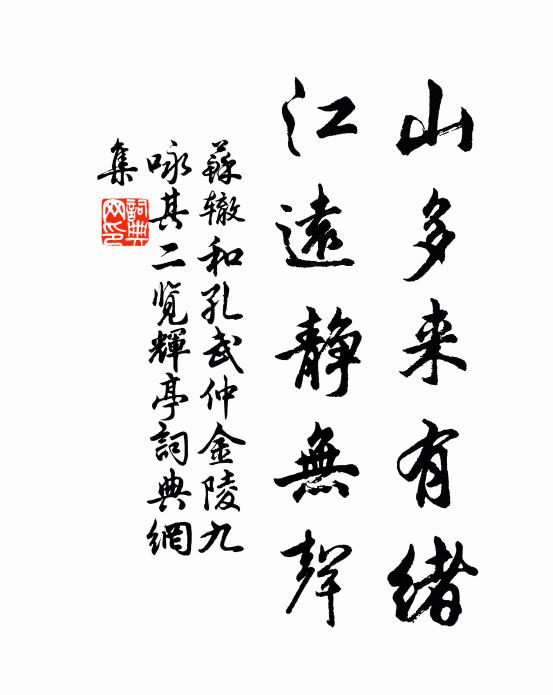 山多来有緒
江遠静無聲
蘇辙和孔武仲金陵九
咏其二覽輝亭詞典網
集
詞典
网印